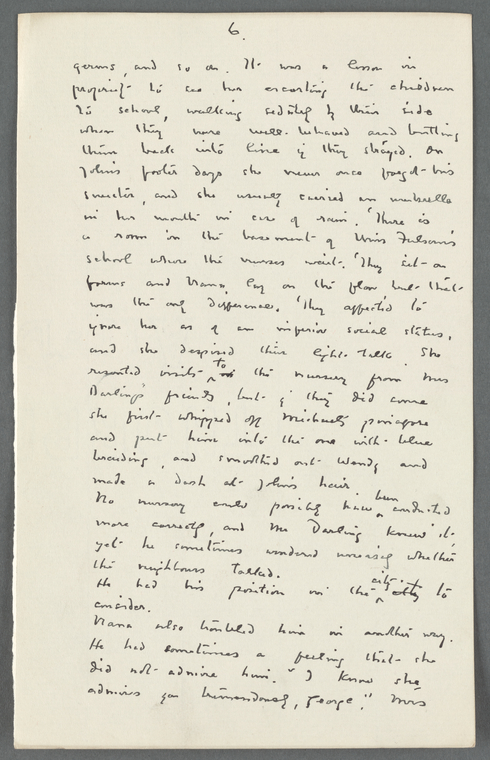 6.
germs, and so on. It was a lesson in
propriety to see her escorting the children
to school, walking sedately by their side
when they were well-behaved and butting
them back into line if they strayed. On
John's footer days she never once forgot his
sweater, and she usually carried an umbrella
in her mouth in case of rain. There is
a room in the basement of Miss Fulsom's
school where the nurses wait. They sit on
forms and Nana lay on the floor but that
was the only difference. They affected to
ignore her as of an inferior social status,
and she despised their light talk. She
resented visits to the nursery from Mrs
Darling's friends, but if they did come
she first whipped off Michael's pinafore
and put him into the one with blue
braiding, and smoothed out Wendy and
made a dash at John's hair.
No nursery could possibly have been conducted
more correctly, and Mr Darling knew it,
yet he sometimes wondered uneasily whether
the neighbours talked.
He had his position in the city to
consider.
Nana also troubled him in another way.
He had sometimes a feeling that she
did not admire him. "I know she
admires you tremendously, George." Mrs